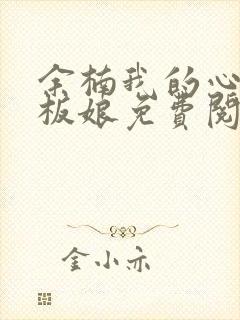 余楠我的心
板娘免费阅
金小亦